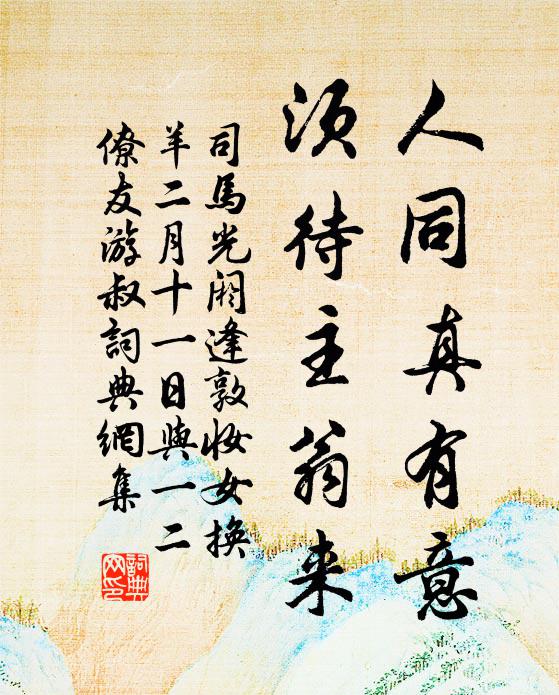 人同真有意
須待主翁来
司馬光閼逢敦妝女換
羊二月十一日與一二
僚友游叔詞典網集
詞典
网印